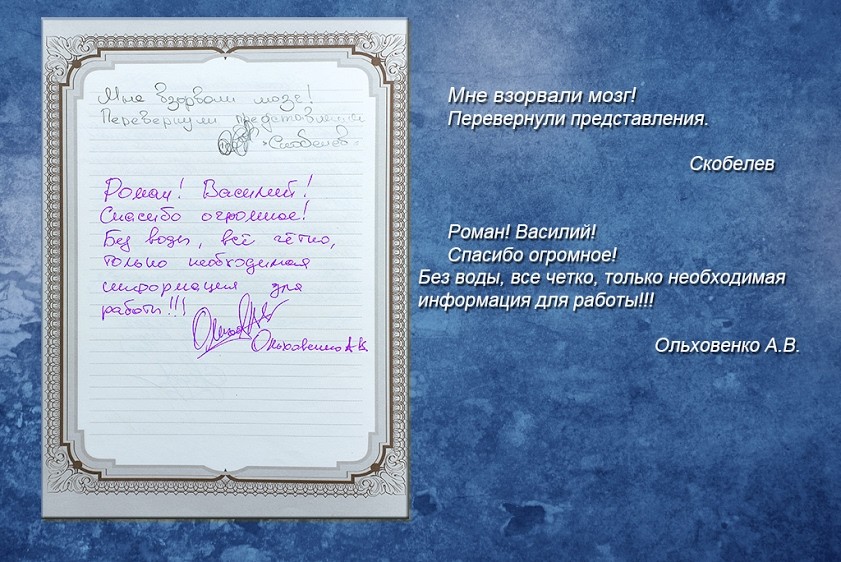 Мне взорвали мозг!
Перевернули представления
Скобелев
Роман! Василий!
Спасибо огромное!
Без воды, всё чётко,
только необходимая
информация для
работы!!!
Ольховенко А.В.
Мне взорвали мозг!
Перевернули представления.
Скобелев
Роман! Василий!
Спасибо огромное!
Без воды, все четко, только необходимая
информация для работы!!!
Ольховенко А.В.